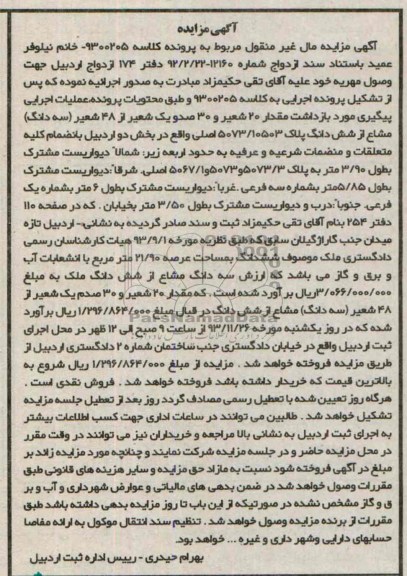 آگهی مزایده
آگهی مزایده مال غیر منقول مربوط به پرونده کلاسه ۹۳۰۰۲۰۵- خانم نیلوفر
عمید باستناد سند ازدواج شماره ۱۲۱۶۰-۹۲/۲/۲۲ دفتر ۱۷۴ ازدواج اردبیل جهت
وصول مهریه خود علیه آقای تقی حکیمزاد مبادرت به صدور اجرائیه نموده که پس
از تشکیل پرونده اجرایی به کلاسه ۹۳۰۰۲۰۵ و طبق محتویات پرونده،عملیات اجرایی
پیگیری مورد بازداشت مقدار ۲۰ شعیر و ۳۰ صدو یک شعیر از ۴۸ شعیر (سه دانگ)
مشاع از شش دانگ پلاک ۵۰۷۳/۱۰۵۰۳ اصلی واقع در بخش دو اردبیل بانضمام کلیه
متعلقات و منضمات شرعیه و عرفیه به حدود اربعه زیر: شمالا" دیواریست مشترک
بطول ۳/۹۰ متر به پلاک ۵۰۷۳/۳و۵۰۷۳و۵۰۶۷/۱ اصلی. شرقا:دیواریست مشترک
بطول ۵/۸۵متر بشماره سه فرعی .غربا":دیواریست مشترک بطول ۶ متر بشماره یک
فرعی. جنوبا":درب و دیواریست مشترک بطول ۳/۵۰ متر بخیابان . که در صفحه ۱۱۰
دفتر ۲۵۴ بنام آقای تقی حکیمزاد ثبت و سند صادر گردیده به نشانی- اردبیل تازه
میدان جنب گاراژگیلان سابق که طبق نظریه مورخه ۹۳/۹/۱ هیات کارشناسان رسمی
دادگستری ملک موصوف ششدانگ بمساحت عرصه ۲۱/۹۰ متر مربع با انشعابات آب
و برق و گاز می باشد که ارزش سه دانگ مشاع از شش دانگ ملک به مبلغ
۳/۰۶۶/۰۰۰/۰۰۰ریال بر آورد شده است . که مقدار ۲۰ شعیر و ۳۰ صدم یک شعیر از
۴۸ شعیر (سه دانگ) مشاع از شش دانگ در قبال مبلغ ۱/۲۹۶/۸۶۴/۰۰۰ ریال برآورد
شده که در روز یکشنبه مورخه ۹۳/۱۱/۲۶ از ساعت ۹ صبح الی ۱۲ ظهر در محل اجرای
ثبت اردبیل واقع در خیابان دادگستری جنب ساختمان شماره ۲ دادگستری اردبیل از
طریق مزایده فروخته خواهد شد . مزایده از مبلغ ۱/۲۹۶/۸۶۴/۰۰۰ ریال شروع به
بالاترین قیمت که خریدار داشته باشد فروخته خواهد شد . فروش نقدی است .
هرگاه روز تعیین شده با تعطیل رسمی مصادف گردد روز بعد از تعطیل جلسه مزایده
تشکیل خواهد شد . طالبین می توانند در ساعات اداری جهت کسب اطلاعات بیشتر
به اجرای ثبت اردبیل به نشانی بالا مراجعه و خریداران نیز می توانند در وقت مقرر
در محل مزایده حاضر و در جلسه مزایده شرکت نمایند و چنانچه مورد مزایده زائد بر
مبلغ در آگهی فروخته شود نسبت به مازاد حق مزایده و سایر هزینه های قانونی طبق
مقررات وصول خواهد شد در ضمن بدهی های مالیاتی و عوارض شهرداری و آب و بر
ق و گاز مشخص نشده در صورتیکه از این باب تا روز مزایده بدهی داشته باشد طبق
مقررات از برنده مزایده وصول خواهد شد . تنظیم سند انتقال موکول به ارائه مفاصا
حسابهای دارایی وشهر داری و غیره ... خواهد بود.
بهرام حیدری - رییس اداره ثبت اردبیل